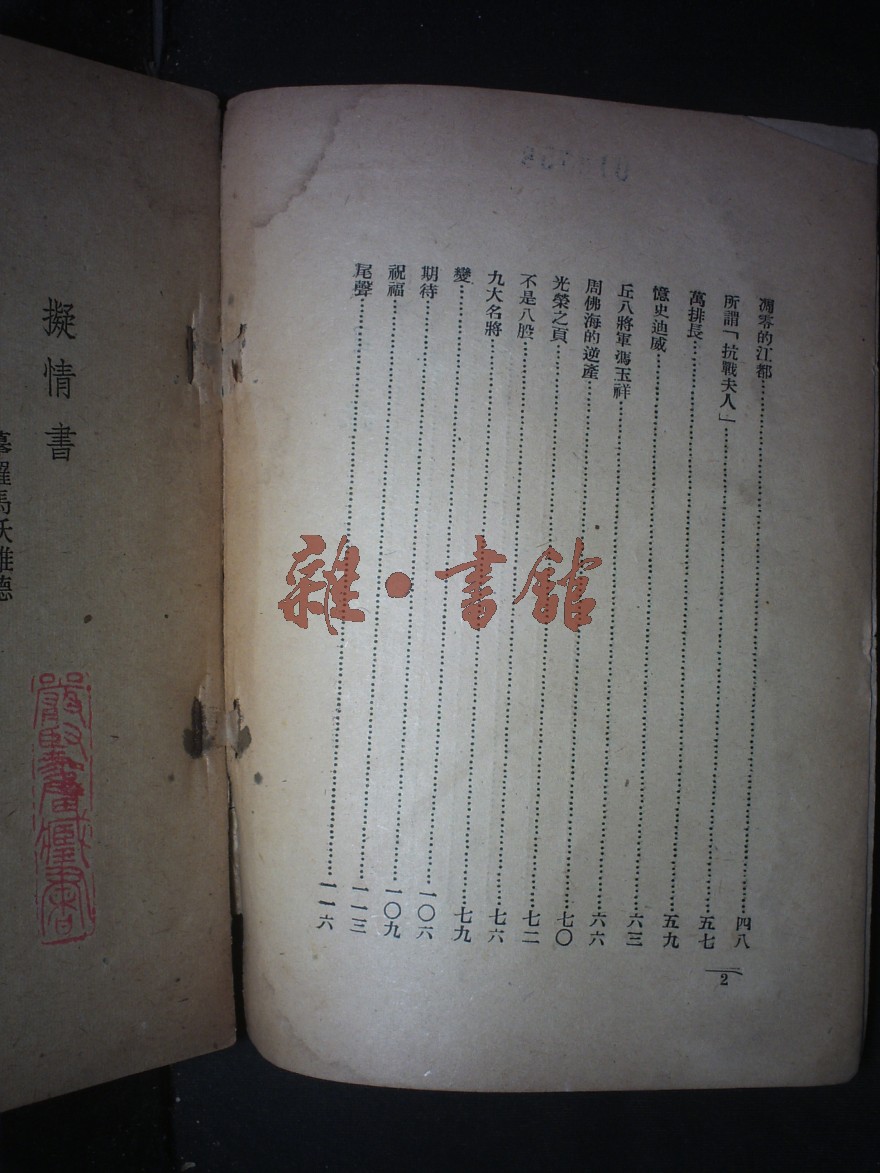 凋零的江都…………四八
所謂「抗戰夫人」…………五七
萬排長…………五九
憶史迪威…………六三
丘八將軍馮玉祥…………六六
周佛海的逆產…………七〇
光榮之頁…………七二
不是八股…………七六
九大名將…………七九
變…………一〇六
期待…………一〇九
祝福…………一一三
尾聲…………一一六
2
擬情書
羅馬沃維德
雜·書館